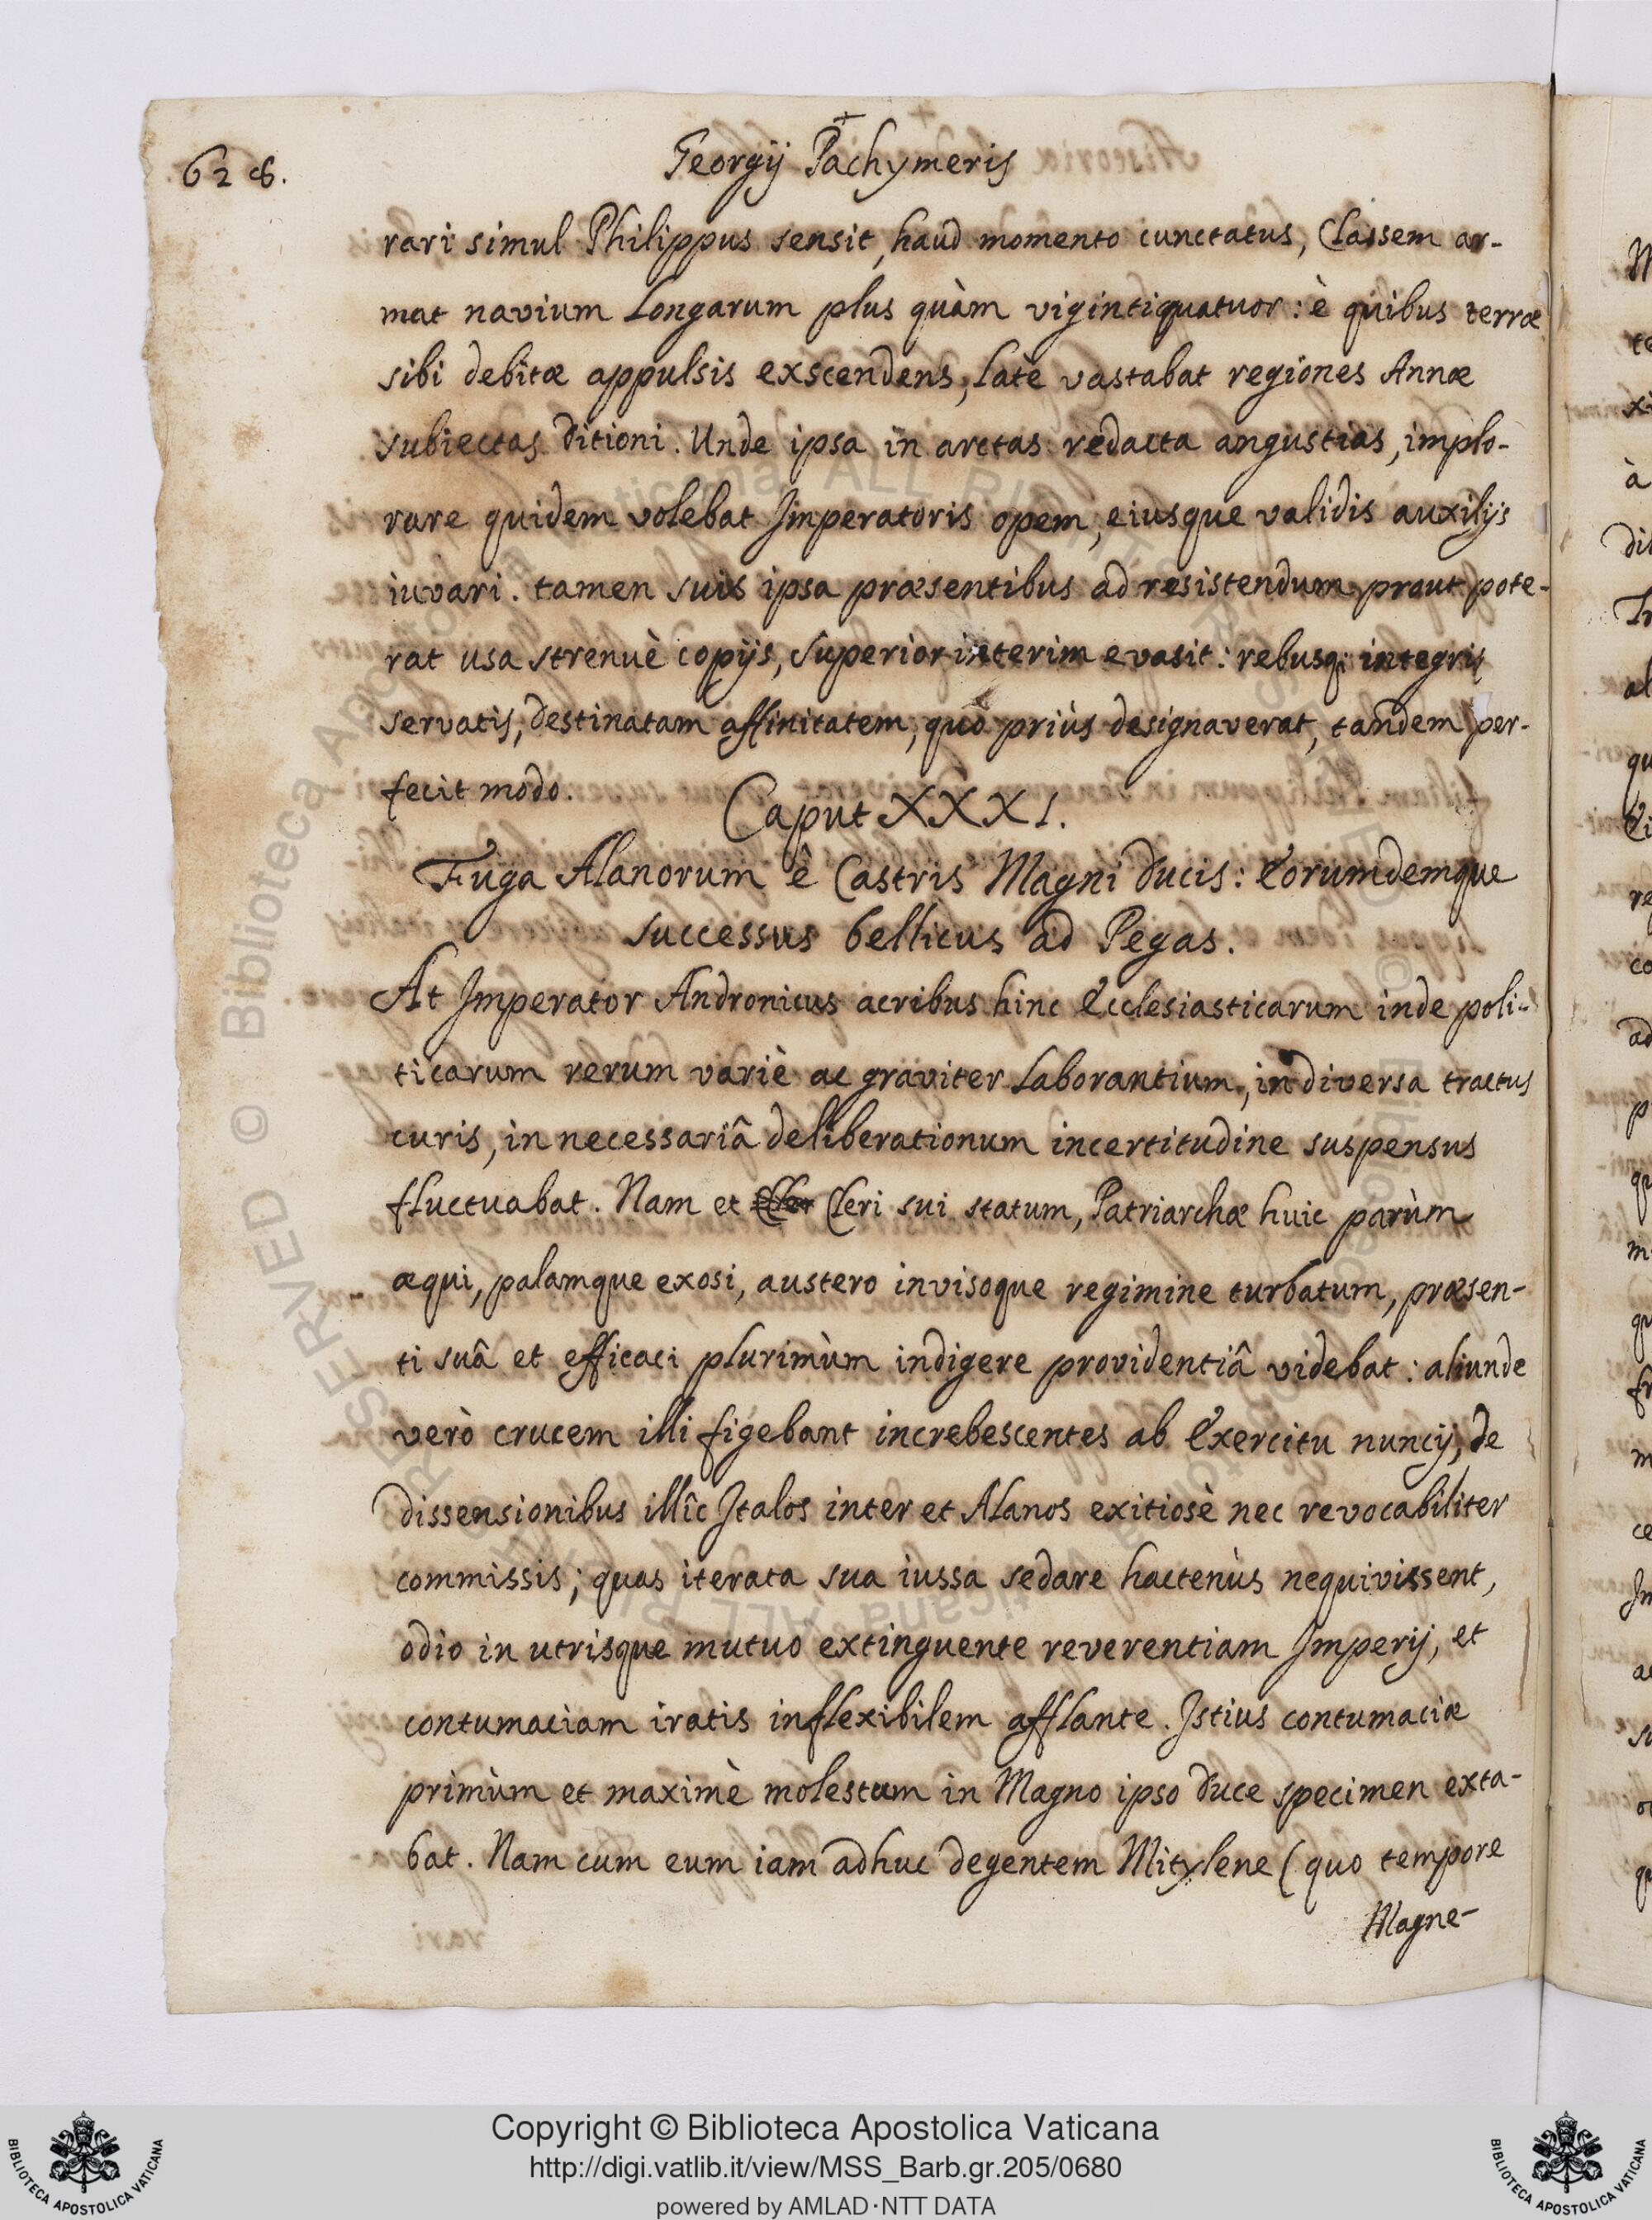 628.
Georgij Pachymeris
rari simul Philippus sensit, haud momento cunctatus, Classem ar-
mat navium Longarum plus quàm vigintiquatuor: è quibus terræ
sibi debitæ appulsis exscendens, latè vastabat regiones Annæ
subiectas Ditioni. Unde ipsa in arctas redacta angustias, implo-
rare quidem volebat Imperatoris opem, eiusque validis auxilijs
iuvari. tamen suis ipsa præsentibus ad resistendum prout pote-
rat usa strenuè copijs, superior interim evasit: rebusq; integris
servatis, destinatam affinitatem, quo priùs designaverat, tandem per-
fecit modo.
Caput XXXI.
Fuga Alanorum è Castris Magni Ducis: Eorumdemque
successus bellicus ad Pegas.
At Imperator Andronicus acribus hinc Ecclesiasticarum inde poli-
ticarum rerum variè ac graviter Laborantium, in diversa tractus
curis, in necessariâ deliberationum incertitudine suspensus
fluctuabat. Nam et Cleri sui statum, Patriarchæ huic parùm
æqui, palamque exosi, austero invisoque regimine turbatum, præsen-
ti suâ et efficaci plurimùm indigere providentiâ videbat: aliunde
verò crucem illi figebant increbescentes ab Exercitu nuncij, de
dissensionibus illîc Italos inter et Alanos exitiosè nec revocabiliter
commissis; quas iterata sua iussa sedare hactenùs nequivissent,
odio in utrisque mutuo extinguente reverentiam Imperij, et
contumaciam iratis inflexibilem afflante. Istius contumaciæ
primùm et maximè molestum in Magno ipso Duce specimen exta-
bat. Nam cum eum iam adhuc degentem Mitylene (quo tempore
Magne-
Copyright © Biblioteca Apostolica Vaticana
http://digi.vatlib.it/view/MSS_Barb.gr.205/0680
powered by AMLAD·NTT DATA
BIBLIOTECA APOSTOLICA VATICANA
BIBLIOTECA APOSTOLICA VATICANA